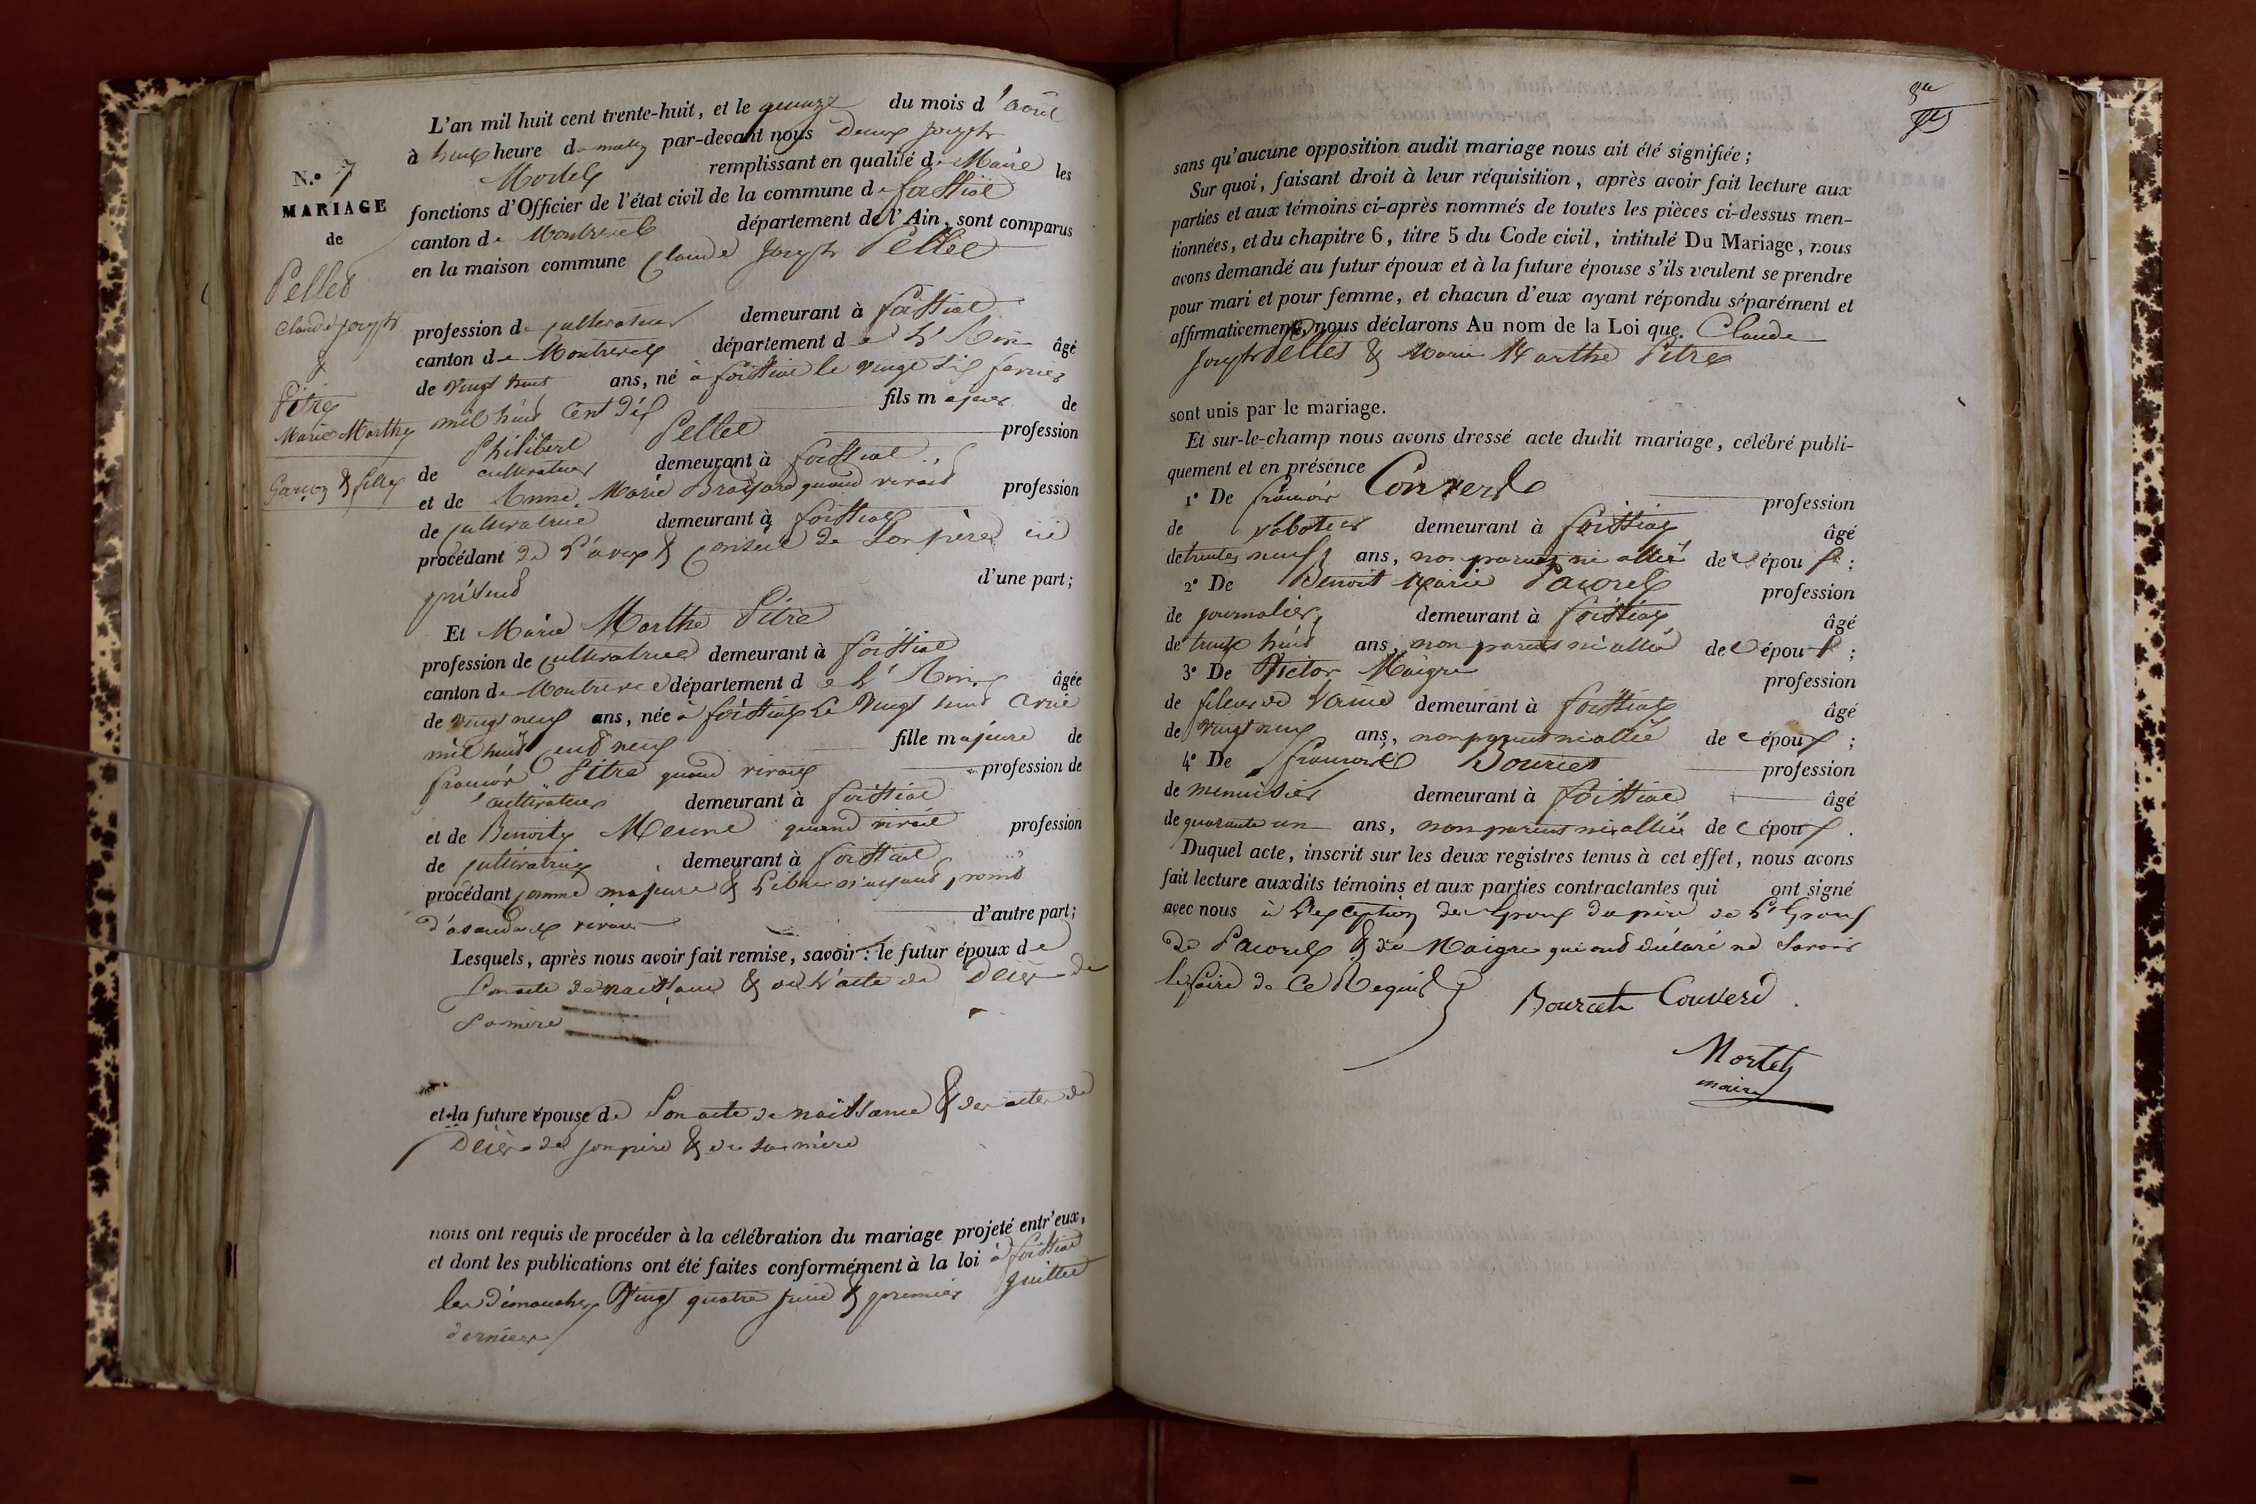 N.º 7
MARIAGE
de
Pellet
Claude Joseph
&
Pitre
Marie Marthe
Garçon & fille
L'an mil huit cent trente-huit, et le quinze du mois d'août
à heure d par-devant nous Joseph
Mortel remplissant en qualité de Maire les
fonctions d'Officier de l'état civil de la commune de foissiat
canton de Montrevel département de l'Ain, sont comparus
en la maison commune Claude Joseph Pellet
profession de cultivateur demeurant à foissiat
canton de Montrevel département de l'Ain âgé
de vingt huit ans, né à foissiat le vingt six fevrier
mil huit cent dix fils majeur de
Philibert Pellet profession
de cultivateur demeurant à foissiat
et de Anne Marie quand vivait profession
de cultivatrice demeurant à foissiat
procédant de l'avis & conseil de son père ici
présent d'une part;
Et Marie Marthe Pitre
profession de cultivatrice demeurant à foissiat
canton de Montrevel département de l'Ain âgée
de vingt neuf ans, née à foissiat le vingt huit avril
mil huit cent neuf fille majeure de
françois Pitre quand vivait profession de
cultivateur demeurant à foissiat
et de Benoite quand vivait profession
de cultivatrice demeurant à foissiat
procédant comme majeure & libre n'ayant point
d'ascendants vivans d'autre part;
Lesquels, après nous avoir fait remise, savoir: le futur époux de
son acte de naissance & de l'acte de décès de
sa mère
et la future épouse de son acte de naissance & des actes de
décès de son père & de sa mère
nous ont requis de procéder à la célébration du mariage projeté entr'eux,
et dont les publications ont été faites conformément à la loi à foissiat
les dimanches vingt quatre juin & premier juillet
dernier
sans qu'aucune opposition audit mariage nous ait été signifiée;
Sur quoi, faisant droit à leur réquisition, après avoir fait lecture aux
parties et aux témoins ci-après nommés de toutes les pièces ci-dessus men-
tionnées, et du chapitre 6, titre 5 du Code civil, intitulé Du Mariage, nous
avons demandé au futur époux et à la future épouse s'ils veulent se prendre
pour mari et pour femme, et chacun d'eux ayant répondu séparément et
affirmativement, nous déclarons Au nom de la Loi que Claude
Joseph Pellet & Marie Marthe Pitre
sont unis par le mariage.
Et sur-le-champ nous avons dressé acte dudit mariage, célébré publi-
quement et en présence
1º De françois Convert profession
de sabotier demeurant à foissiat âgé
de trente neuf ans, non parent ni allié des époux;
2º De Benoit Marie Pacorel profession
de journalier demeurant à foissiat âgé
de trente huit ans, non parent ni allié des époux;
3º De Victor Maigre profession
de fileur de laine demeurant à foissiat âgé
de vingt neuf ans, non parent ni allié des époux;
4º De françois Bourcet profession
de menuisier demeurant à foissiat âgé
de quarante un ans, non parent ni allié des époux.
Duquel acte, inscrit sur les deux registres tenus à cet effet, nous avons
fait lecture auxdits témoins et aux parties contractantes qui ont signé
avec nous à l'exception des époux du père de l'époux
de Pacorel & de Maigre qui ont déclaré ne savoir
le faire de ce requis
Bourcet Convert
Mortel
maire